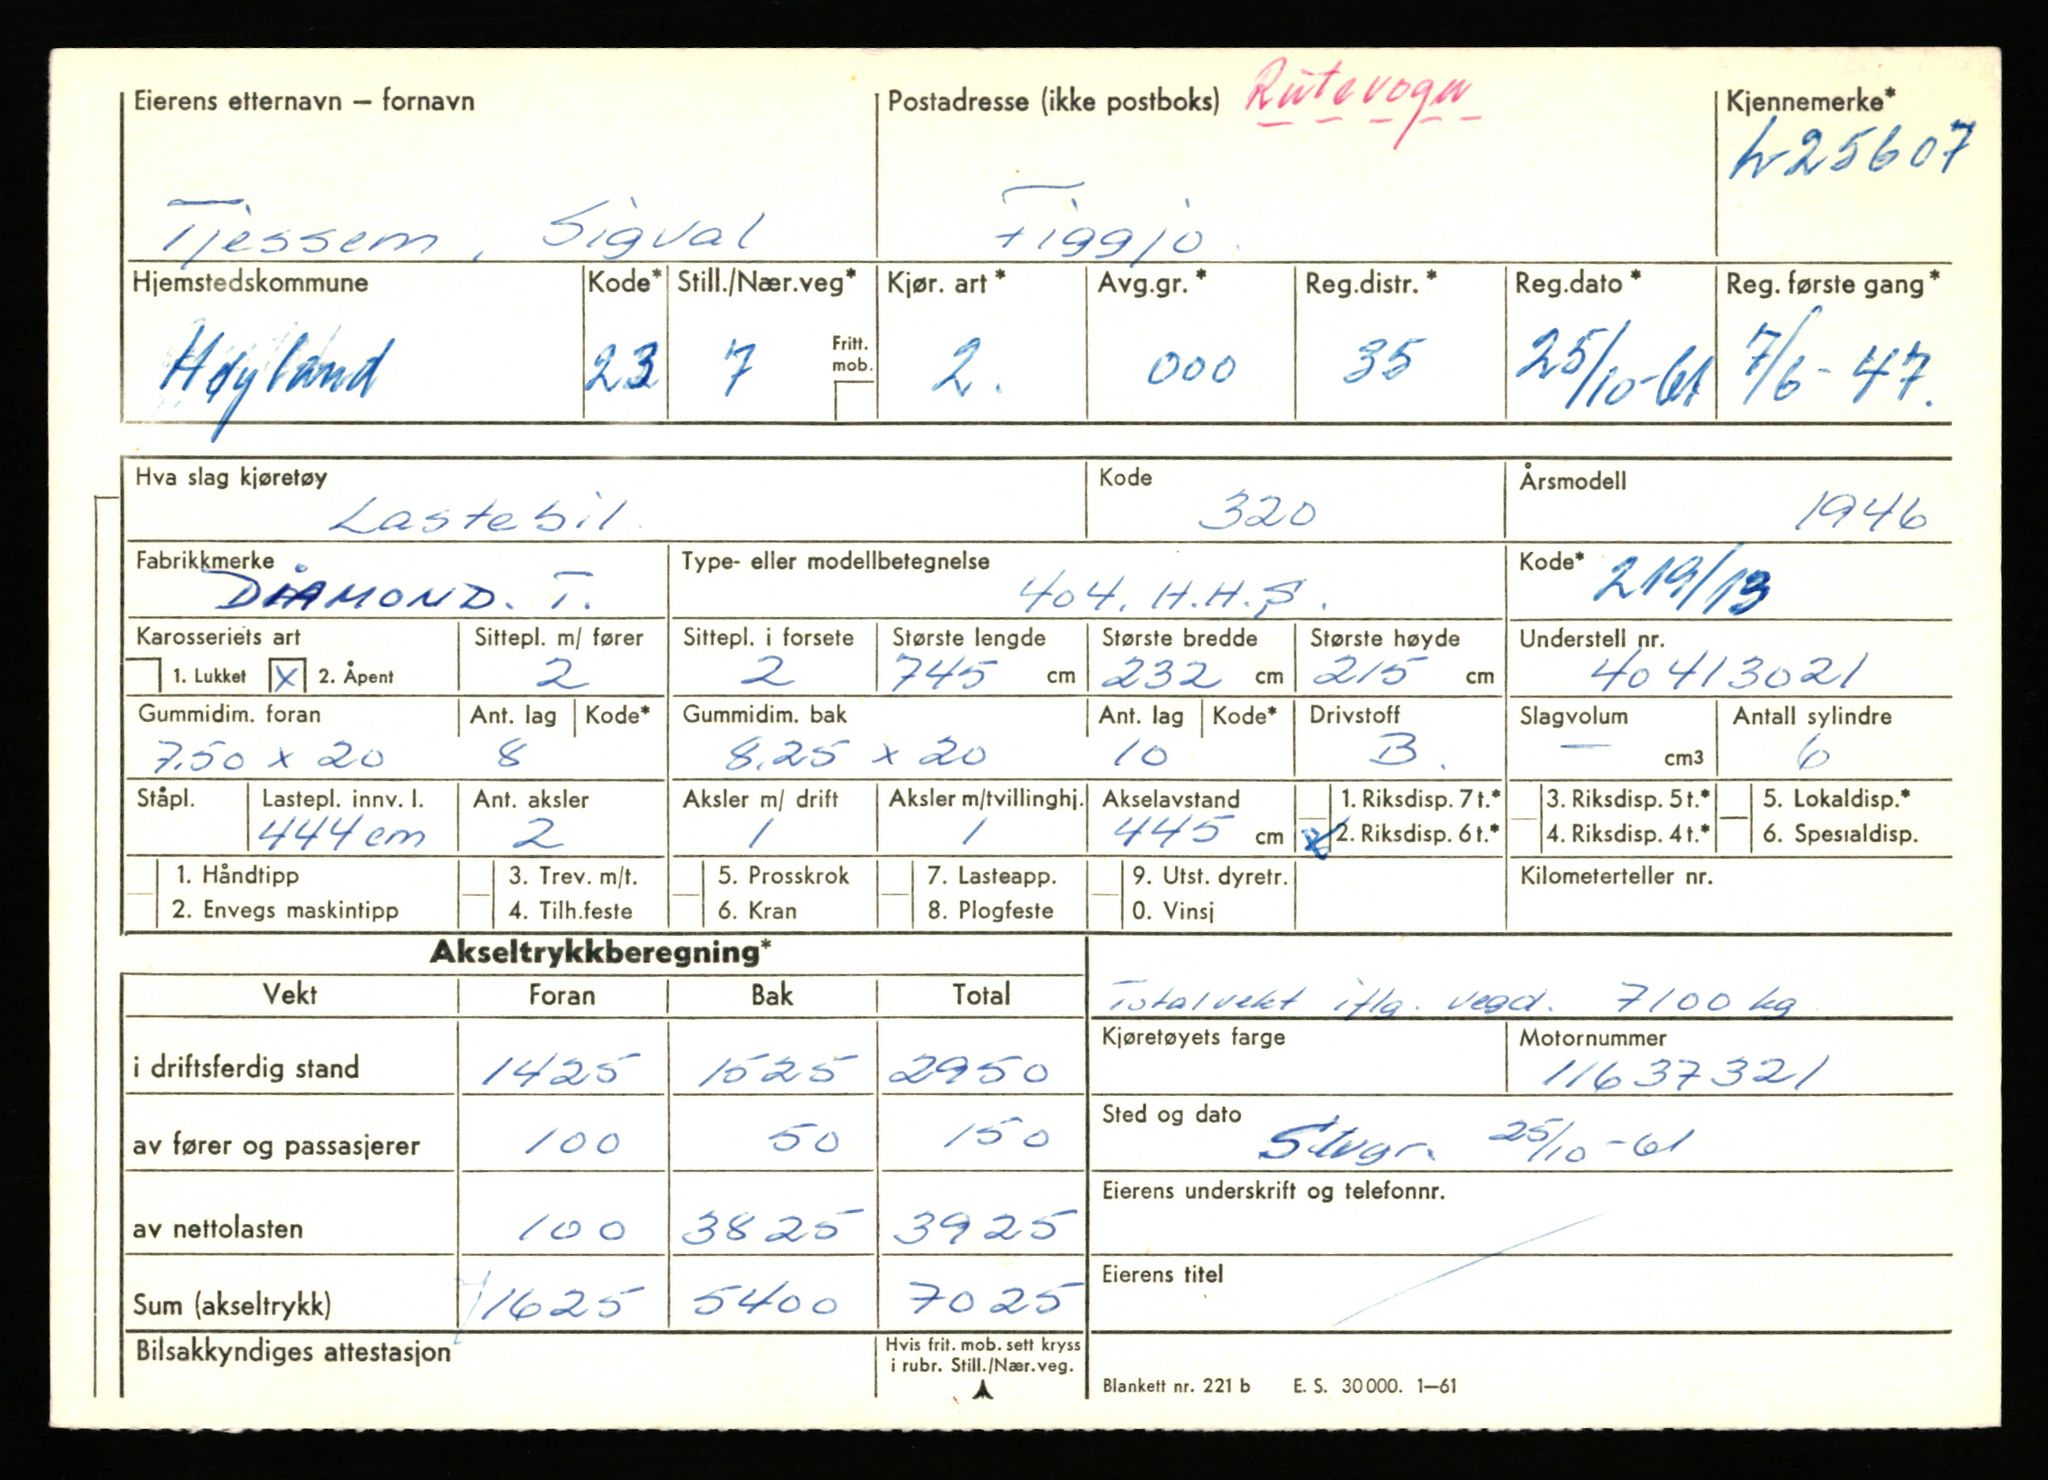 Eierens etternavn – fornavn Postadresse (ikke postboks) Rutevogn Kjennemerke*
L-25607
Tjessem, Sigval Figgjo.
Hjemstedskommune Kode* Still./Nær.veg* Kjør. art* Avg.gr.* Reg.distr.* Reg.dato* Reg. første gang*
Fritt. mob.
Høyland 23 7 2. 000 35 25/10-61 7/6-47.
Hva slag kjøretøy Kode Årsmodell
Lastebil. 320 1946
Fabrikkmerke Type- eller modellbetegnelse Kode* 219/13
DIAMOND. T. 404. H.H.S.
Karosseriets art Sittepl. m/ fører Sittepl. i forsete Største lengde Største bredde Største høyde Understell nr.
1. Lukket X 2. Åpent 2 2 745 cm 232 cm 215 cm 40413021
Gummidim. foran Ant. lag Kode* Gummidim. bak Ant. lag Kode* Drivstoff Slagvolum Antall sylindre
7.50 x 20 8 8.25 x 20 10 B. — cm3 6
Ståpl. Lastepl. innv. l. Ant. aksler Aksler m/ drift Aksler m/tvillinghj. Akselavstand 1. Riksdisp. 7 t.* 3. Riksdisp. 5 t.* 5. Lokaldisp.*
444 cm 2 1 1 445 cm x 2. Riksdisp. 6 t.* 4. Riksdisp. 4 t.* 6. Spesialdisp.
1. Håndtipp 3. Trev. m/t. 5. Prosskrok 7. Lasteapp. 9. Utst. dyretr. Kilometerteller nr.
2. Envegs maskintipp 4. Tilh.feste 6. Kran 8. Plogfeste 0. Vinsj
Akseltrykkberegning*
Vekt Foran Bak Total Totalvekt iflg. vegd. 7100 kg
Kjøretøyets farge Motornummer
i driftsferdig stand 1425 1525 2950 11637321
Sted og dato
av fører og passasjerer 100 50 150 Stvgr. 25/10-61
Eierens underskrift og telefonnr.
av nettolasten 100 3825 3925
Eierens titel
Sum (akseltrykk) 1625 5400 7025
Bilsakkyndiges attestasjon Hvis frit. mob. sett kryss
i rubr. Still./Nær.veg.
Blankett nr. 221 b E. S. 30 000. 1–61